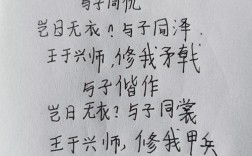 与子同仇
岂曰无衣？与子同泽
王于兴师，修我矛戟
与子偕作
岂曰无衣？与子同裳
王于兴师，修我甲兵